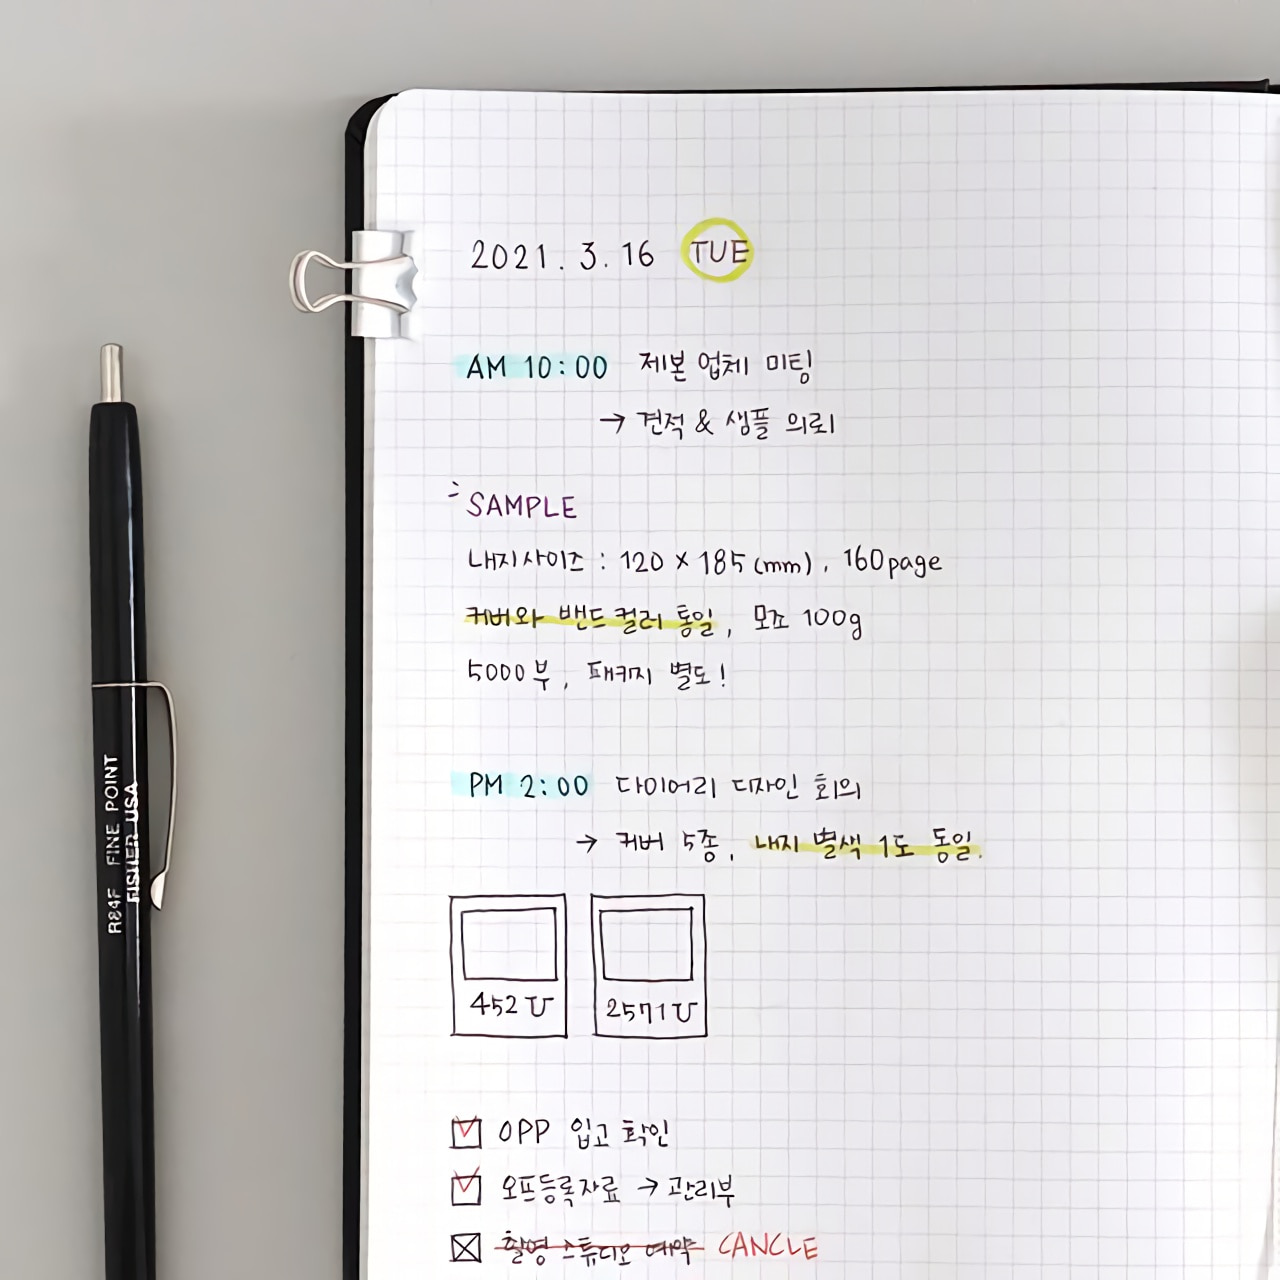 2021. 3. 16 TUE
AM 10:00 제본 업체 미팅
→ 견적 & 샘플 의뢰
SAMPLE
내지사이즈 : 120 × 185 (mm), 160page
커버와 밴드 컬러 통일, 모조 100g
5000부, 패키지 별도!
PM 2:00 다이어리 디자인 회의
→ 커버 5종, 내지 별색 1도 동일.
452U 2571U
OPP 입고 확인
오프등록자료 → 관리부
촬영 스튜디오 예약 CANCLE
R84F FINE POINT
FISHER USA